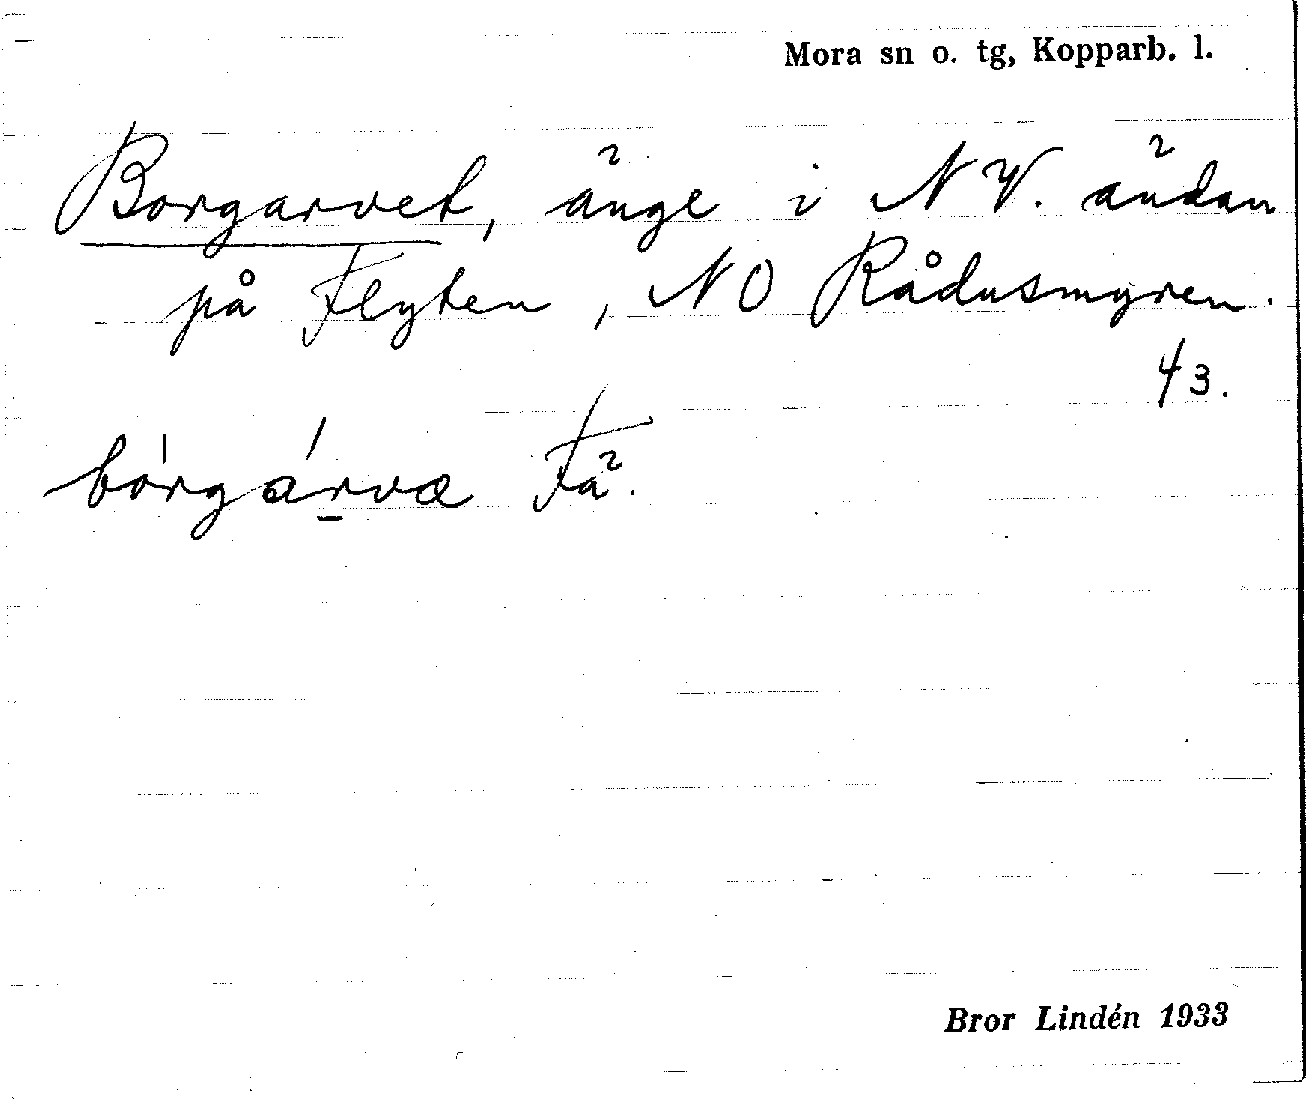 Mora sn o. tg, Kopparb. l.
Borgarvet, änge i NV. ändan
på Flyten, NO Rådusmyren.
43.
bórgárvæ Fä.
Bror Lindén 1933